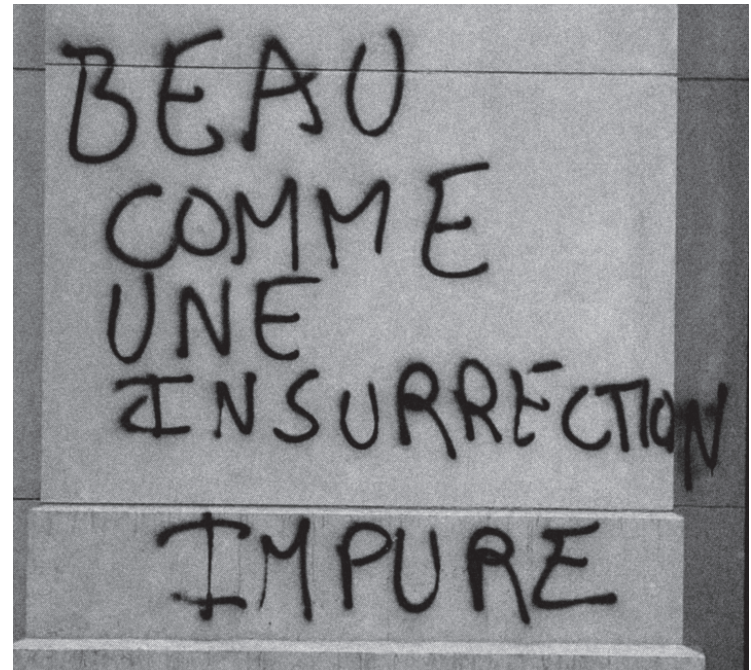 BEAU
COMME
UNE
INSURRECTION
IMPURE